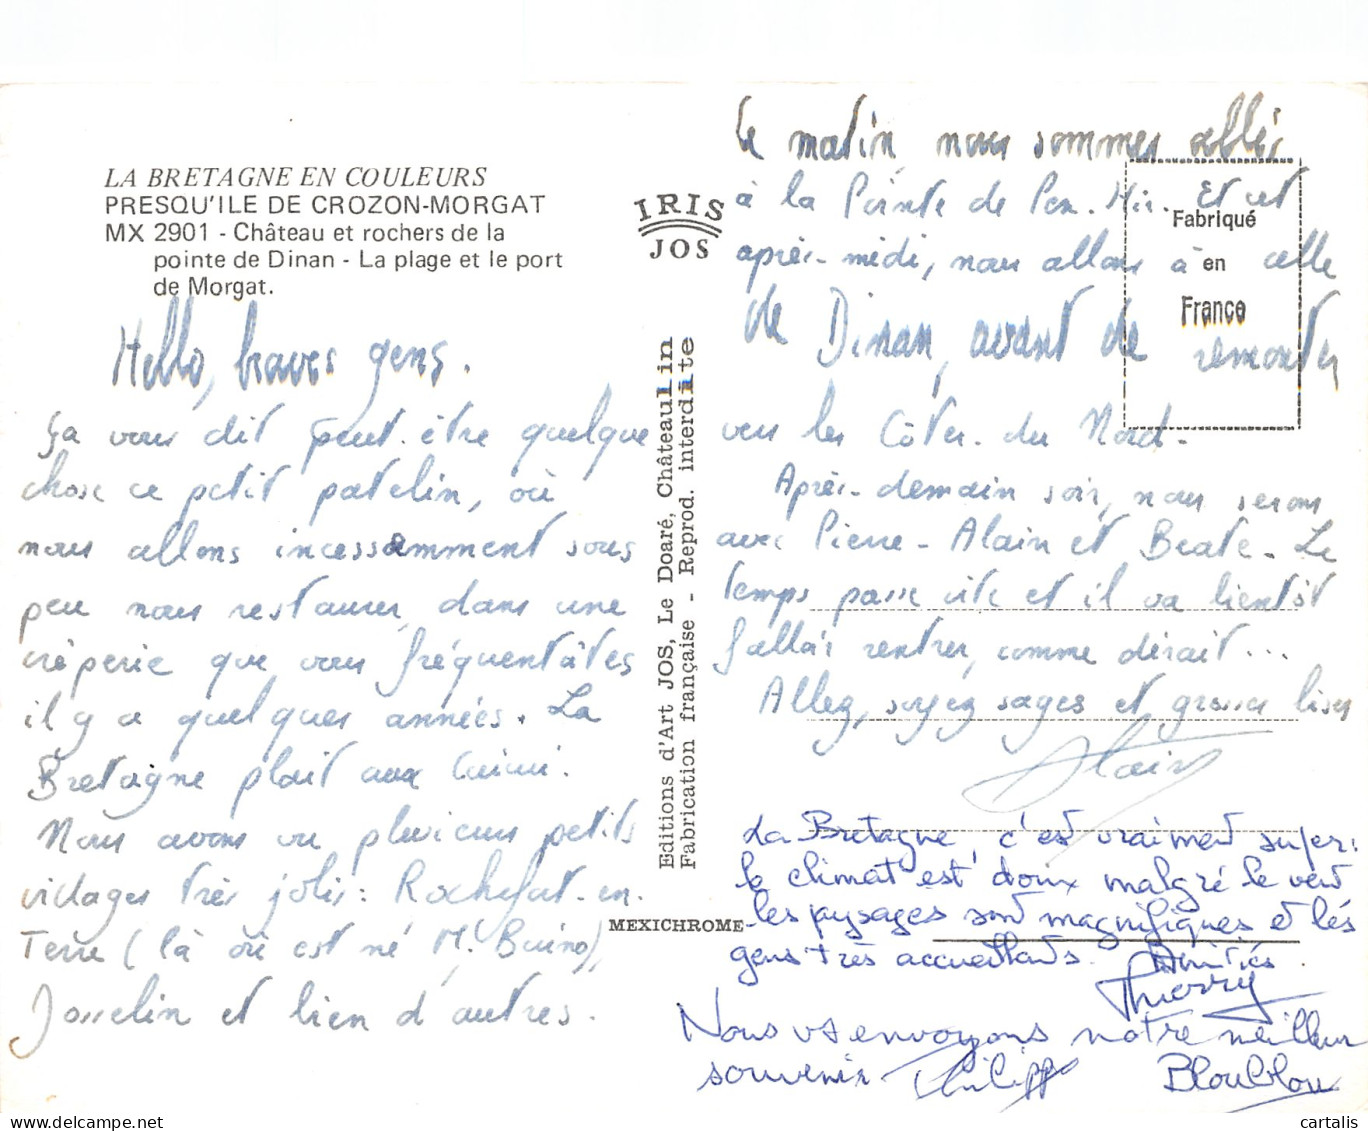 LA BRETAGNE EN COULEURS
PRESQU'ILE DE CROZON-MORGAT
MX 2901 - Château et rochers de la
pointe de Dinan - La plage et le port
de Morgat.
Hello, braves gens.
Ça vous dit peut-être quelque
chose ce petit patelin, où
nous allons incessamment sous
peu nous restaurer, dans une
crêperie que vous fréquentâtes
il y a quelques années. La
Bretagne plait aux
Nous avons vu plusieurs petits
villages très jolis : Rochefort-en-
Terre (là où est né M. Buino),
Josselin et bien d'autres.
IRIS
JOS
Editions d'Art JOS, Le Doaré, Châteaulin
Fabrication française - Reprod. interdite
MEXICHROME
Fabriqué
en
France
Ce matin, nous sommes allés
à la Pointe de Pen-Hir. Et cet
après-midi, nous allons à celle
de Dinan, avant de remonter
vers les Côtes-du-Nord.
Après-demain soir, nous serons
avec Pierre-Alain et Beate. Le
temps passe vite et il va bientôt
falloir rentrer, comme dirait...
Allez, soyez sages et grosses bises
Alain
La Bretagne, c'est vraiment super:
le climat est doux malgré le vent
les paysages sont magnifiques et les
gens très accueillants. Amitiés.
Thierry
Nous vs envoyons notre meilleur
souvenir Philippe Bloublou